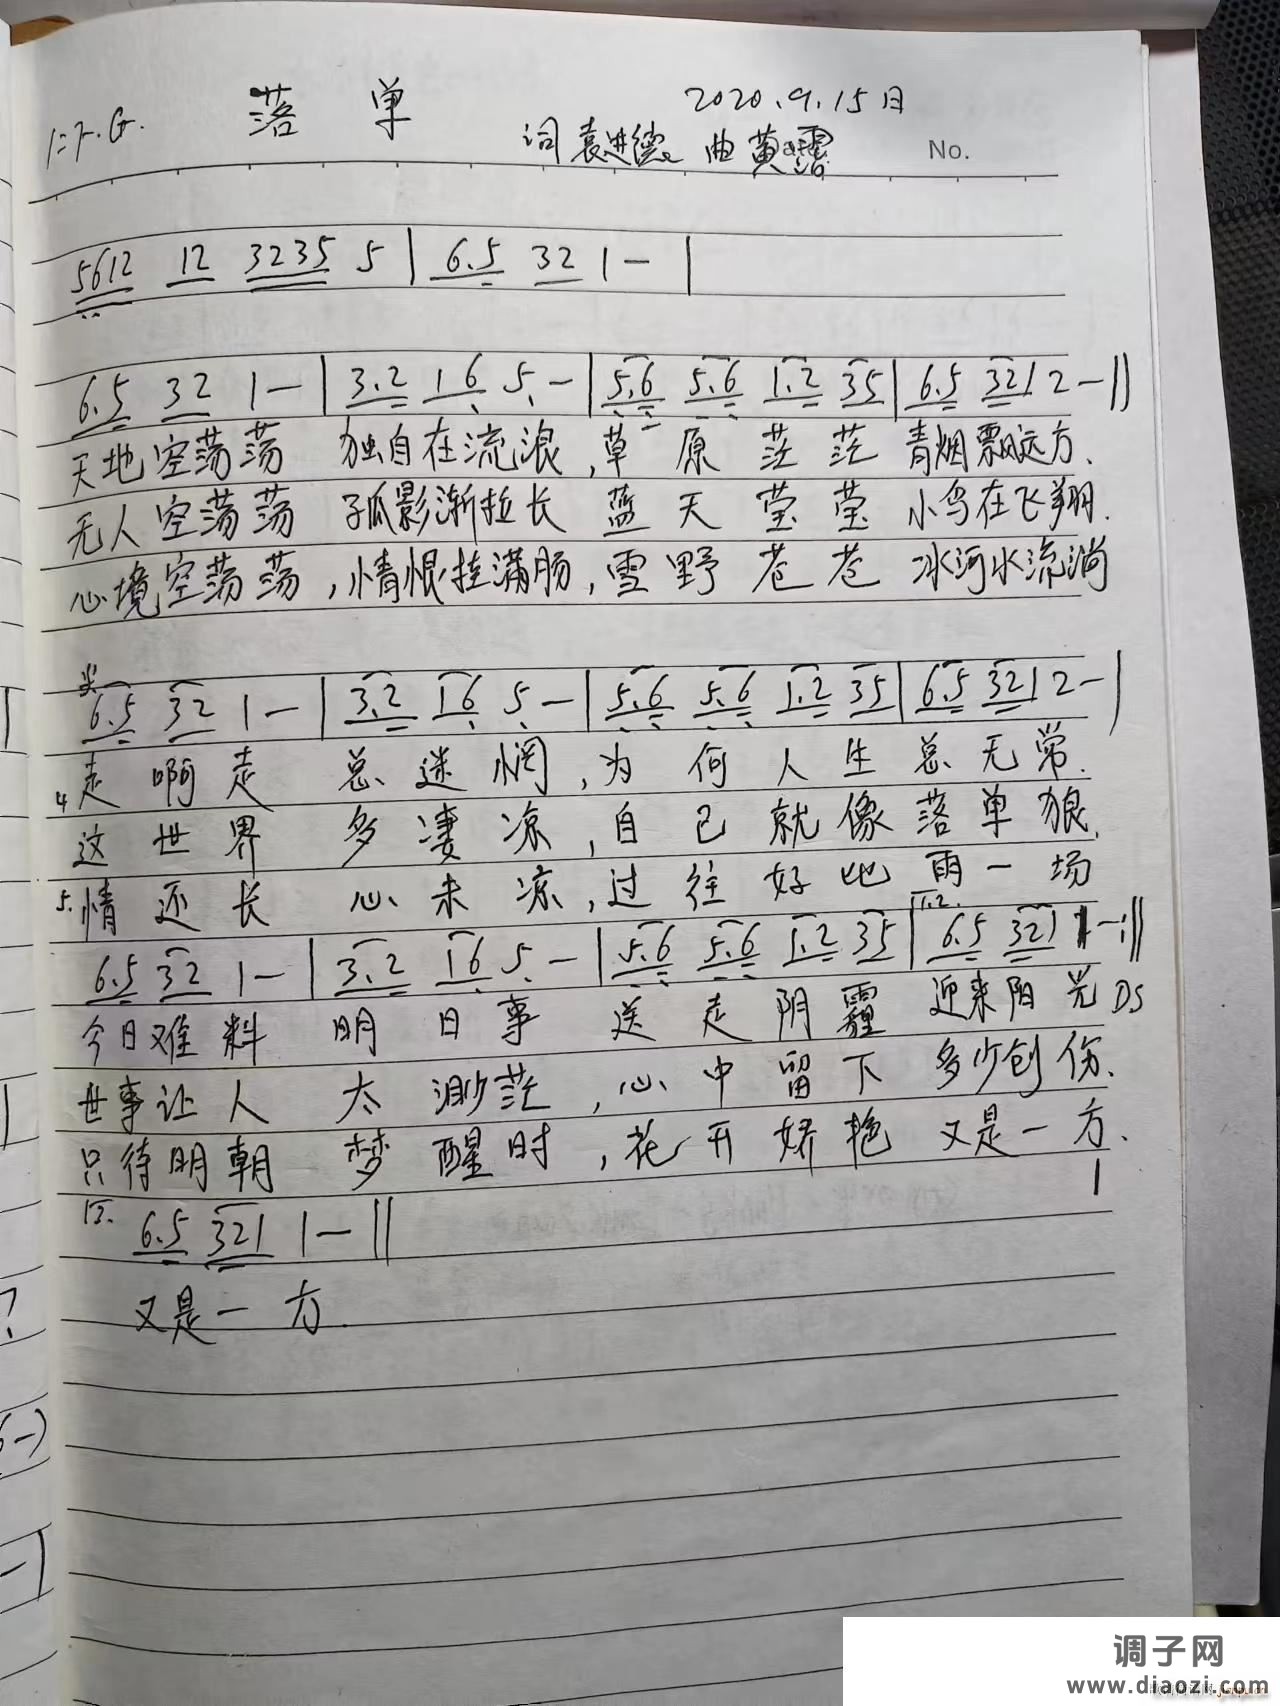 2020.9.15日
1=F.G. 落单
词袁进德 曲黄露
No.
5612 12 3235 5 | 6.5 32 1 — |
6.5 32 1 — | 3.2 16 5 — | 5.6 5.6 1.2 35 | 6.5 321 2 — ||
天地空荡荡 独自在流浪,草原茫茫 青烟飘远方.
无人空荡荡 孤影渐拉长 蓝天莹莹 小鸟在飞翔.
心境空荡荡,情恨挂满肠,雪野苍苍 冰河水流淌
6.5 32 1 — | 3.2 16 5 — | 5.6 5.6 1.2 35 | 6.5 321 2 — |
4 走啊走 总迷惘,为何人生总无常.
这世界 多凄凉,自己就像落单狼.
5. 情还长 心未凉,过往好比雨一场
1.2.
6.5 32 1 — | 3.2 16 5 — | 5.6 5.6 1.2 35 | 6.5 321 1 — :||
今日难料 明日事 送走阴霾 迎来阳光 DS
世事让人 太渺茫,心中留下 多少创伤.
只待明朝 梦醒时,花开娇艳 又是一方.
6.5 321 1 — ||
又是一方.
调子网
www.diaozi.com